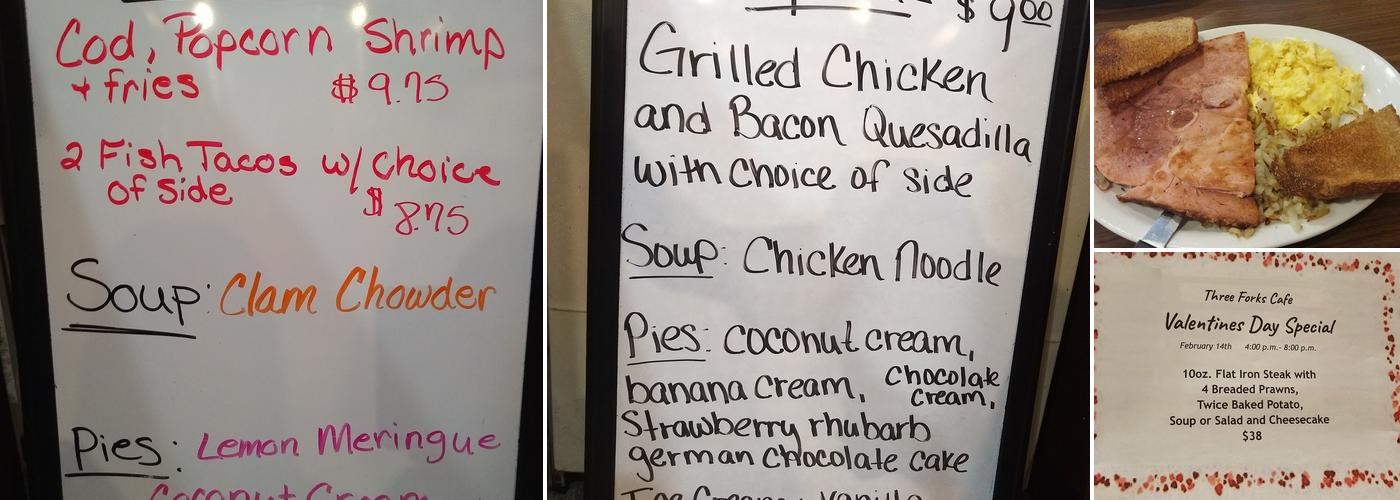 Cod, Popcorn Shrimp
+ fries $9.75
2 Fish Tacos w/ Choice
of Side $8.75
Soup: Clam Chowder
Pies: Lemon Meringue
Coconut Cream
$9.00
Grilled Chicken
and Bacon Quesadilla
with Choice of side
Soup: Chicken Noodle
Pies: coconut cream,
banana cream, Chocolate
cream,
Strawberry rhubarb
german chocolate cake
Ice Cream: Vanilla
Three Forks Cafe
Valentines Day Special
February 14th 4:00 p.m.- 8:00 p.m.
10oz. Flat Iron Steak with
4 Breaded Prawns,
Twice Baked Potato,
Soup or Salad and Cheesecake
$38